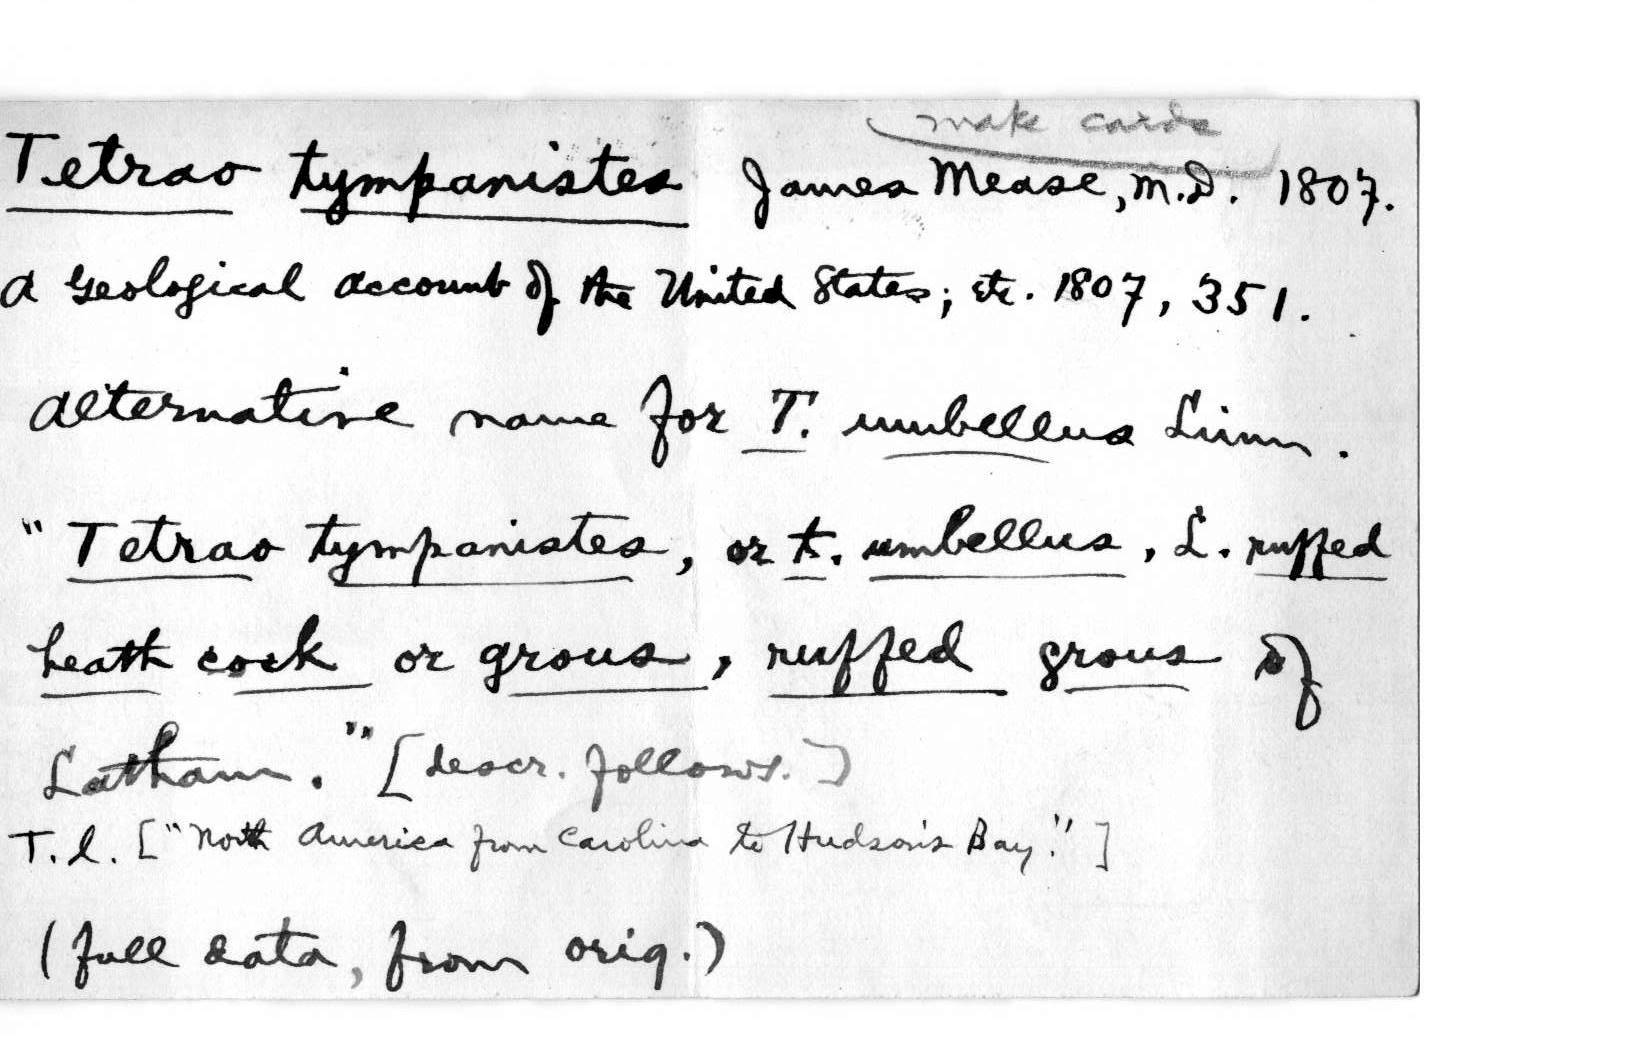 make cards
Tetrao tympanistes James Mease, M.D. 1807.
A Geological account of the United States; etc. 1807, 351.
Alternative name for T. umbellus Linn.
"Tetrao tympanistes, or t. umbellus, L. ruffed
heath cock or grous, ruffed grous of
Latham." [descr. follows.]
T.l. ["North America from Carolina to Hudson's Bay."]
(full data, from orig.)